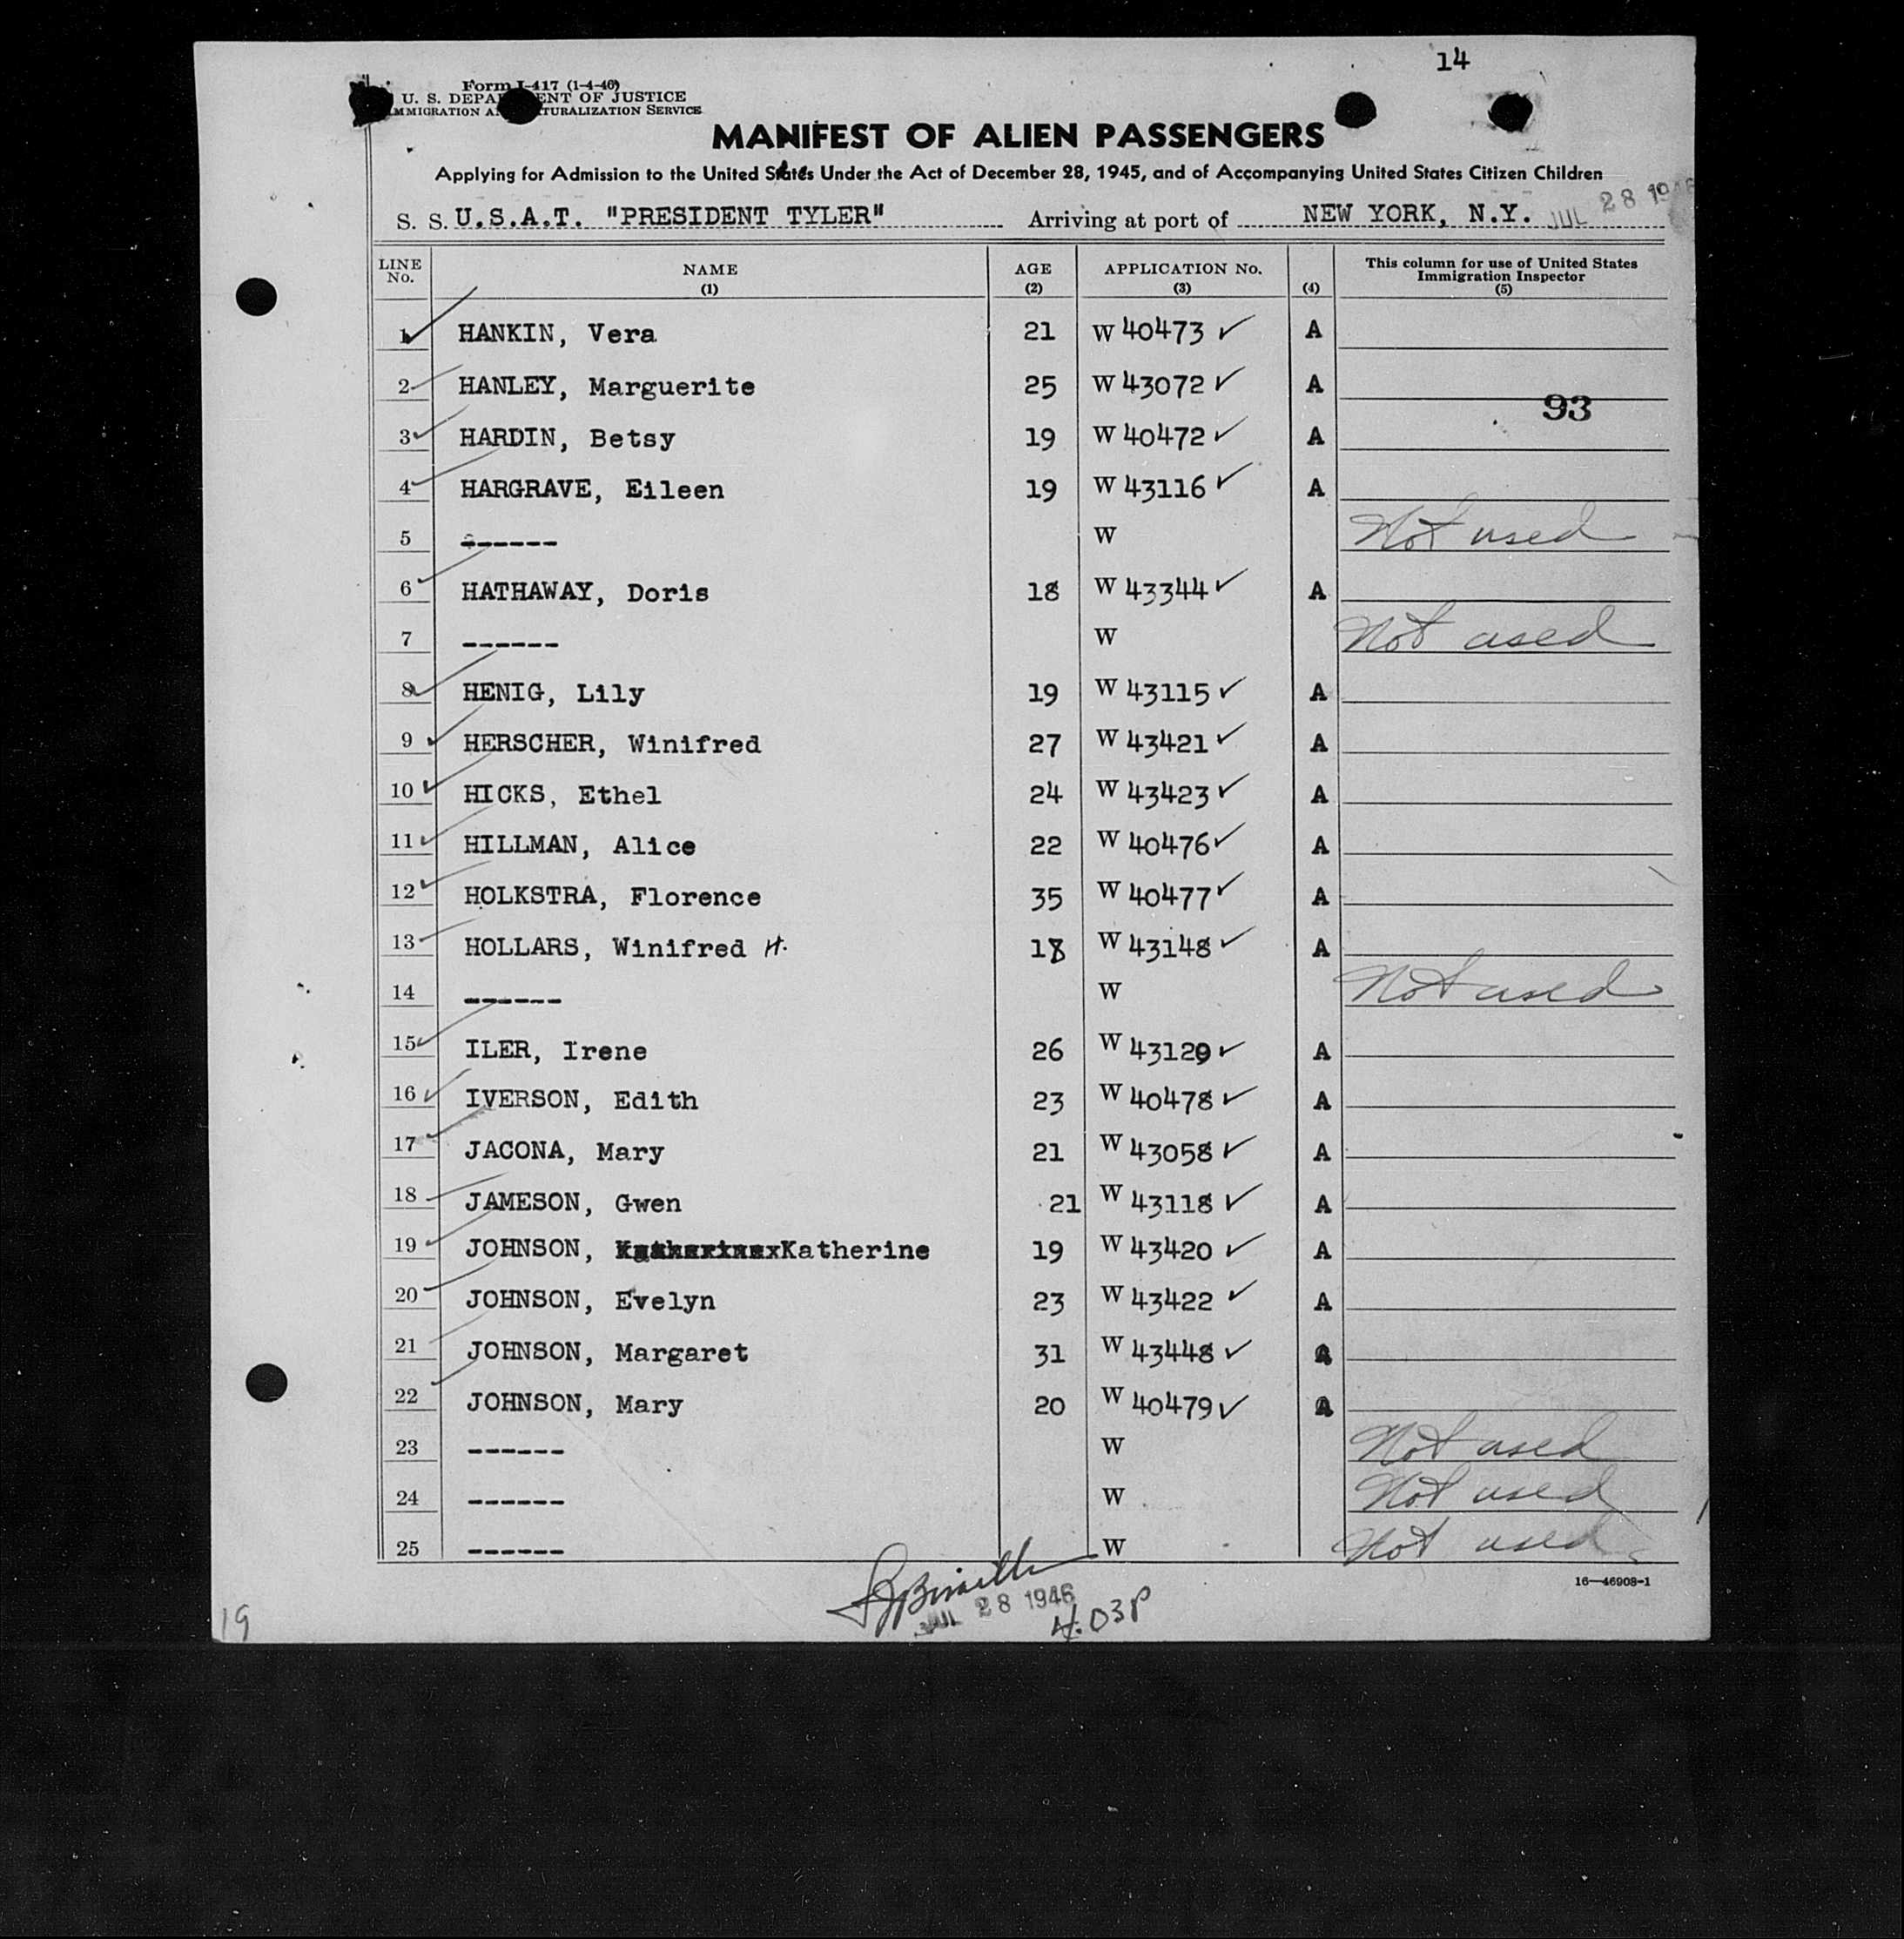 14
Form I-417 (1-4-46)
U. S. DEPARTMENT OF JUSTICE
IMMIGRATION AND NATURALIZATION SERVICE
MANIFEST OF ALIEN PASSENGERS
Applying for Admission to the United States Under the Act of December 28, 1945, and of Accompanying United States Citizen Children
S. S. U.S.A.T. "PRESIDENT TYLER" Arriving at port of NEW YORK, N.Y. JUL 28 1946
LINE No. NAME (1) AGE (2) APPLICATION No. (3) (4) This column for use of United States Immigration Inspector (5)
1 HANKIN, Vera 21 W 40473 ✓ A
2 HANLEY, Marguerite 25 W 43072 ✓ A
93
3 HARDIN, Betsy 19 W 40472 ✓ A
4 HARGRAVE, Eileen 19 W 43116 ✓ A
5 ------ W Not used
6 HATHAWAY, Doris 18 W 43344 ✓ A
7 ------ W Not used
8 HENIG, Lily 19 W 43115 ✓ A
9 HERSCHER, Winifred 27 W 43421 ✓ A
10 HICKS, Ethel 24 W 43423 ✓ A
11 HILLMAN, Alice 22 W 40476 ✓ A
12 HOLKSTRA, Florence 35 W 40477 ✓ A
13 HOLLARS, Winifred H. 18 W 43148 ✓ A
14 ------ W Not used
15 ILER, Irene 26 W 43129 ✓ A
16 IVERSON, Edith 23 W 40478 ✓ A
17 JACONA, Mary 21 W 43058 ✓ A
18 JAMESON, Gwen 21 W 43118 ✓ A
19 JOHNSON, Katherine 19 W 43420 ✓ A
20 JOHNSON, Evelyn 23 W 43422 ✓ A
21 JOHNSON, Margaret 31 W 43448 ✓ A
22 JOHNSON, Mary 20 W 40479 ✓ A
23 ------ W Not used
24 ------ W Not used
25 ------ W Not used
16—46908-1
JUL 28 1946
4:03P
19